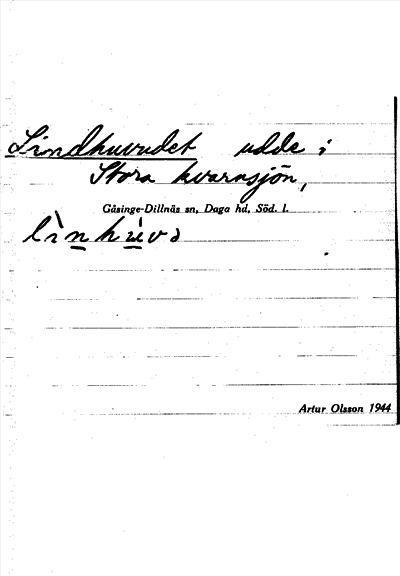 Lindhuvudet udde i
Stora kvarnsjön,
Gåsinge-Dillnäs sn, Daga hd, Söd. l.
lìnhúvə
Artur Olsson 1944